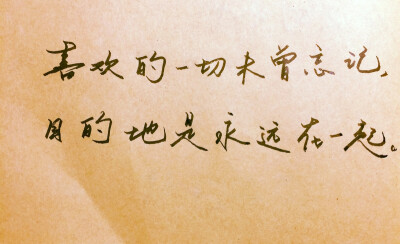 喜欢的一切未曾忘记,
目的地是永远在一起。